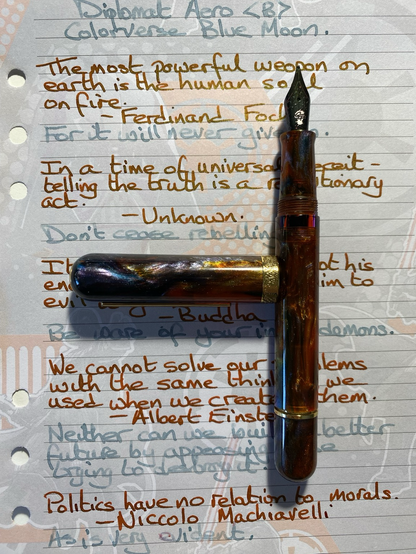 Diplomat Aero <B>
Colorverse Blue Moon.
The most powerful weapon on
earth is the human soul
on fire.
- Ferdinand Foch
For it will never give
In a time of universal deceit -
telling the truth is a revolutionary
act.
- Unknown.
Don't cease rebelling
It his
to
evil
- Buddha
Be wase of your demons.
We cannot solve our problems
with the same thin we
used when we create them.
- Albert Einste
Neither can we buil better
future by appeasing
trying to destroy it.
Politics have no relation to morals.
- Niccolo Machiavelli
As is very evident.